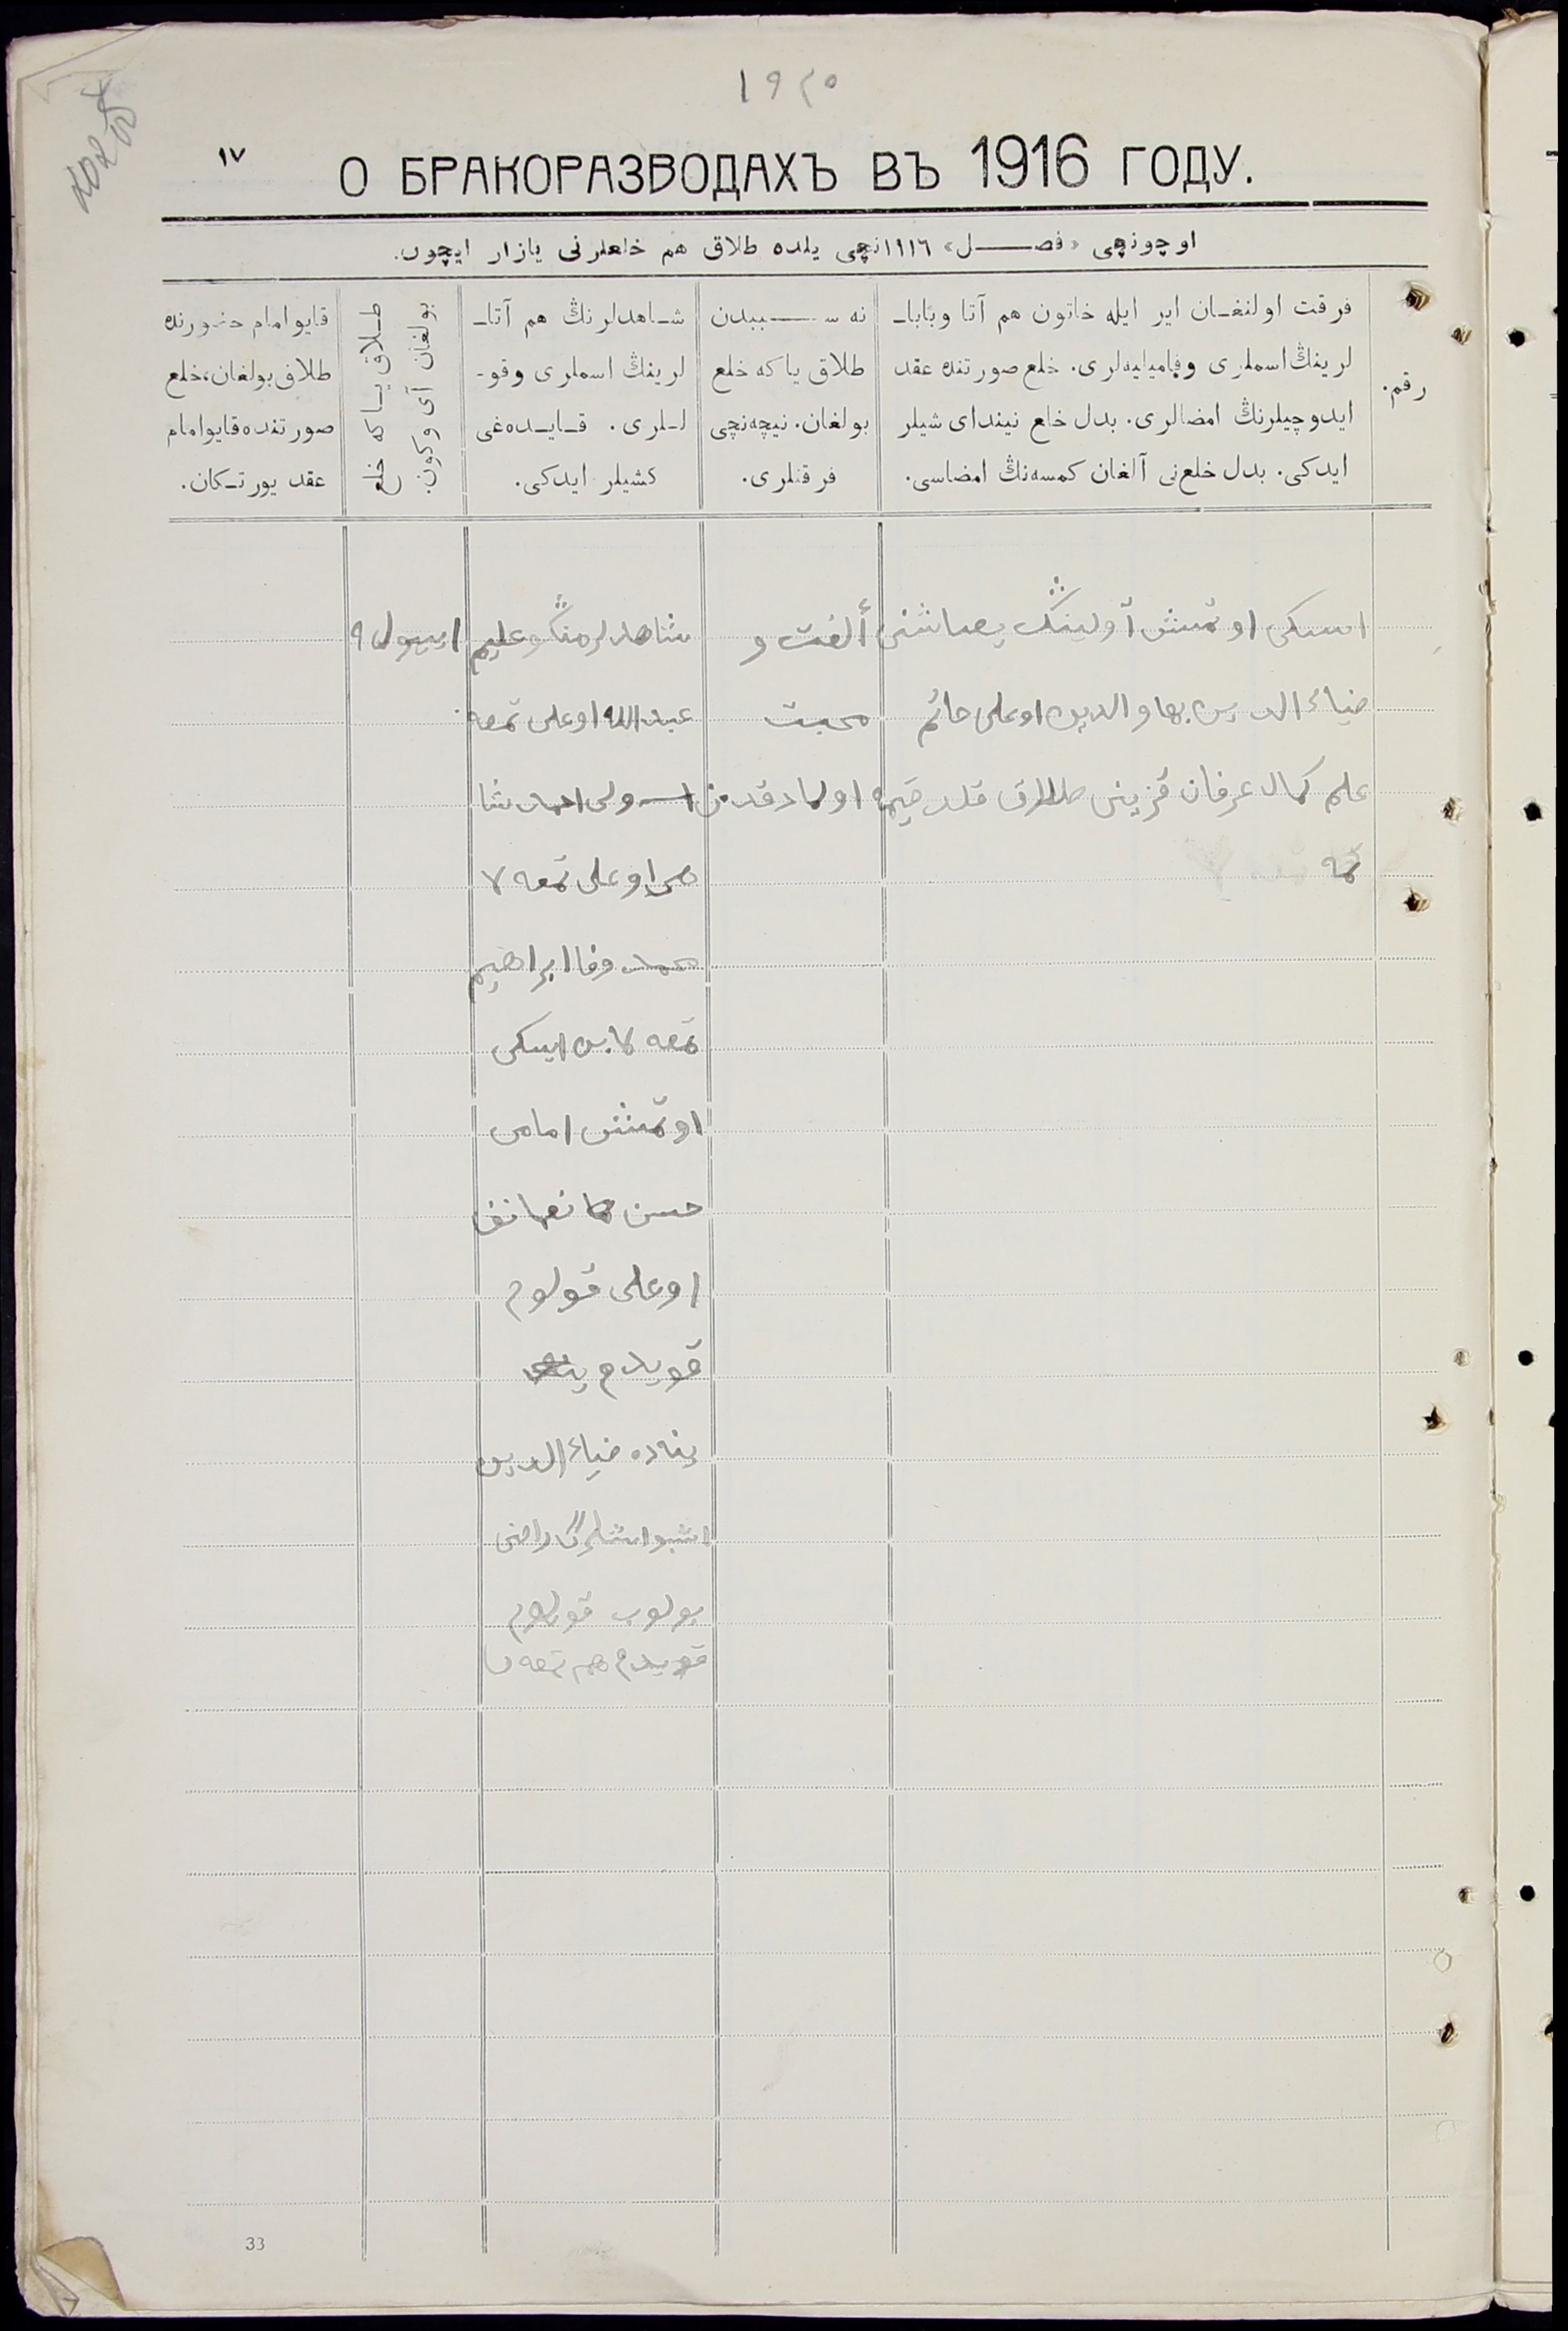 1920
١٧
О БРАКОРАЗВОДАХЪ ВЪ 1916 ГОДУ.
اوچونچی «فصـــل» ١٩١٦نچی یلده طلاق هم خلعلرنی یازار ایچون.
رقم.
فرقت اولنغـان ایر ایله خاتون هم آتا وباباـ
لرینڭ اسملری وفامیلیه‌لری. خلع صورتنده عقد
ایدوچیلرنڭ امضالری. بدل خلع نیندای شیلر
ایدکی. بدل خلع‌نی آلغان کمسه‌نڭ امضاسی.
نه ســـببدن
طلاق یا که خلع
بولغان. نیچه‌نچی
فرقتلری.
شـاهدلرنڭ هم آتاـ
لرینڭ اسملری وقوـ
لـلری. قـایـده‌غی
کشیلر ایدکی.
طـلاق یـا که خلع
بولغان آی وکون.
قایو امام حضورنده
طلاق بولغان، خلع
صورتنده قایو امام
عقد یورتـکان.
اسکی اوتمش آولینڭ
ضیاء الدین بهاوالدین اوغلی خانم
علم کمال عرفان قزینی طلاق
ألفت و
محبت
اولمادقدن
شاهدلر
عبدالله اوغلی تمعه
اوغلی تمعه ٧
محمد وفا ابراهیم
تمعه ٧ بن اسکی
اوتمش امامی
حسن
اوغلی قولوم
قویدم
ضیاء الدین
اشبو اشلرگا راضی
بولوب قولوم
قویدم هم تمعه
ایول ٩
33